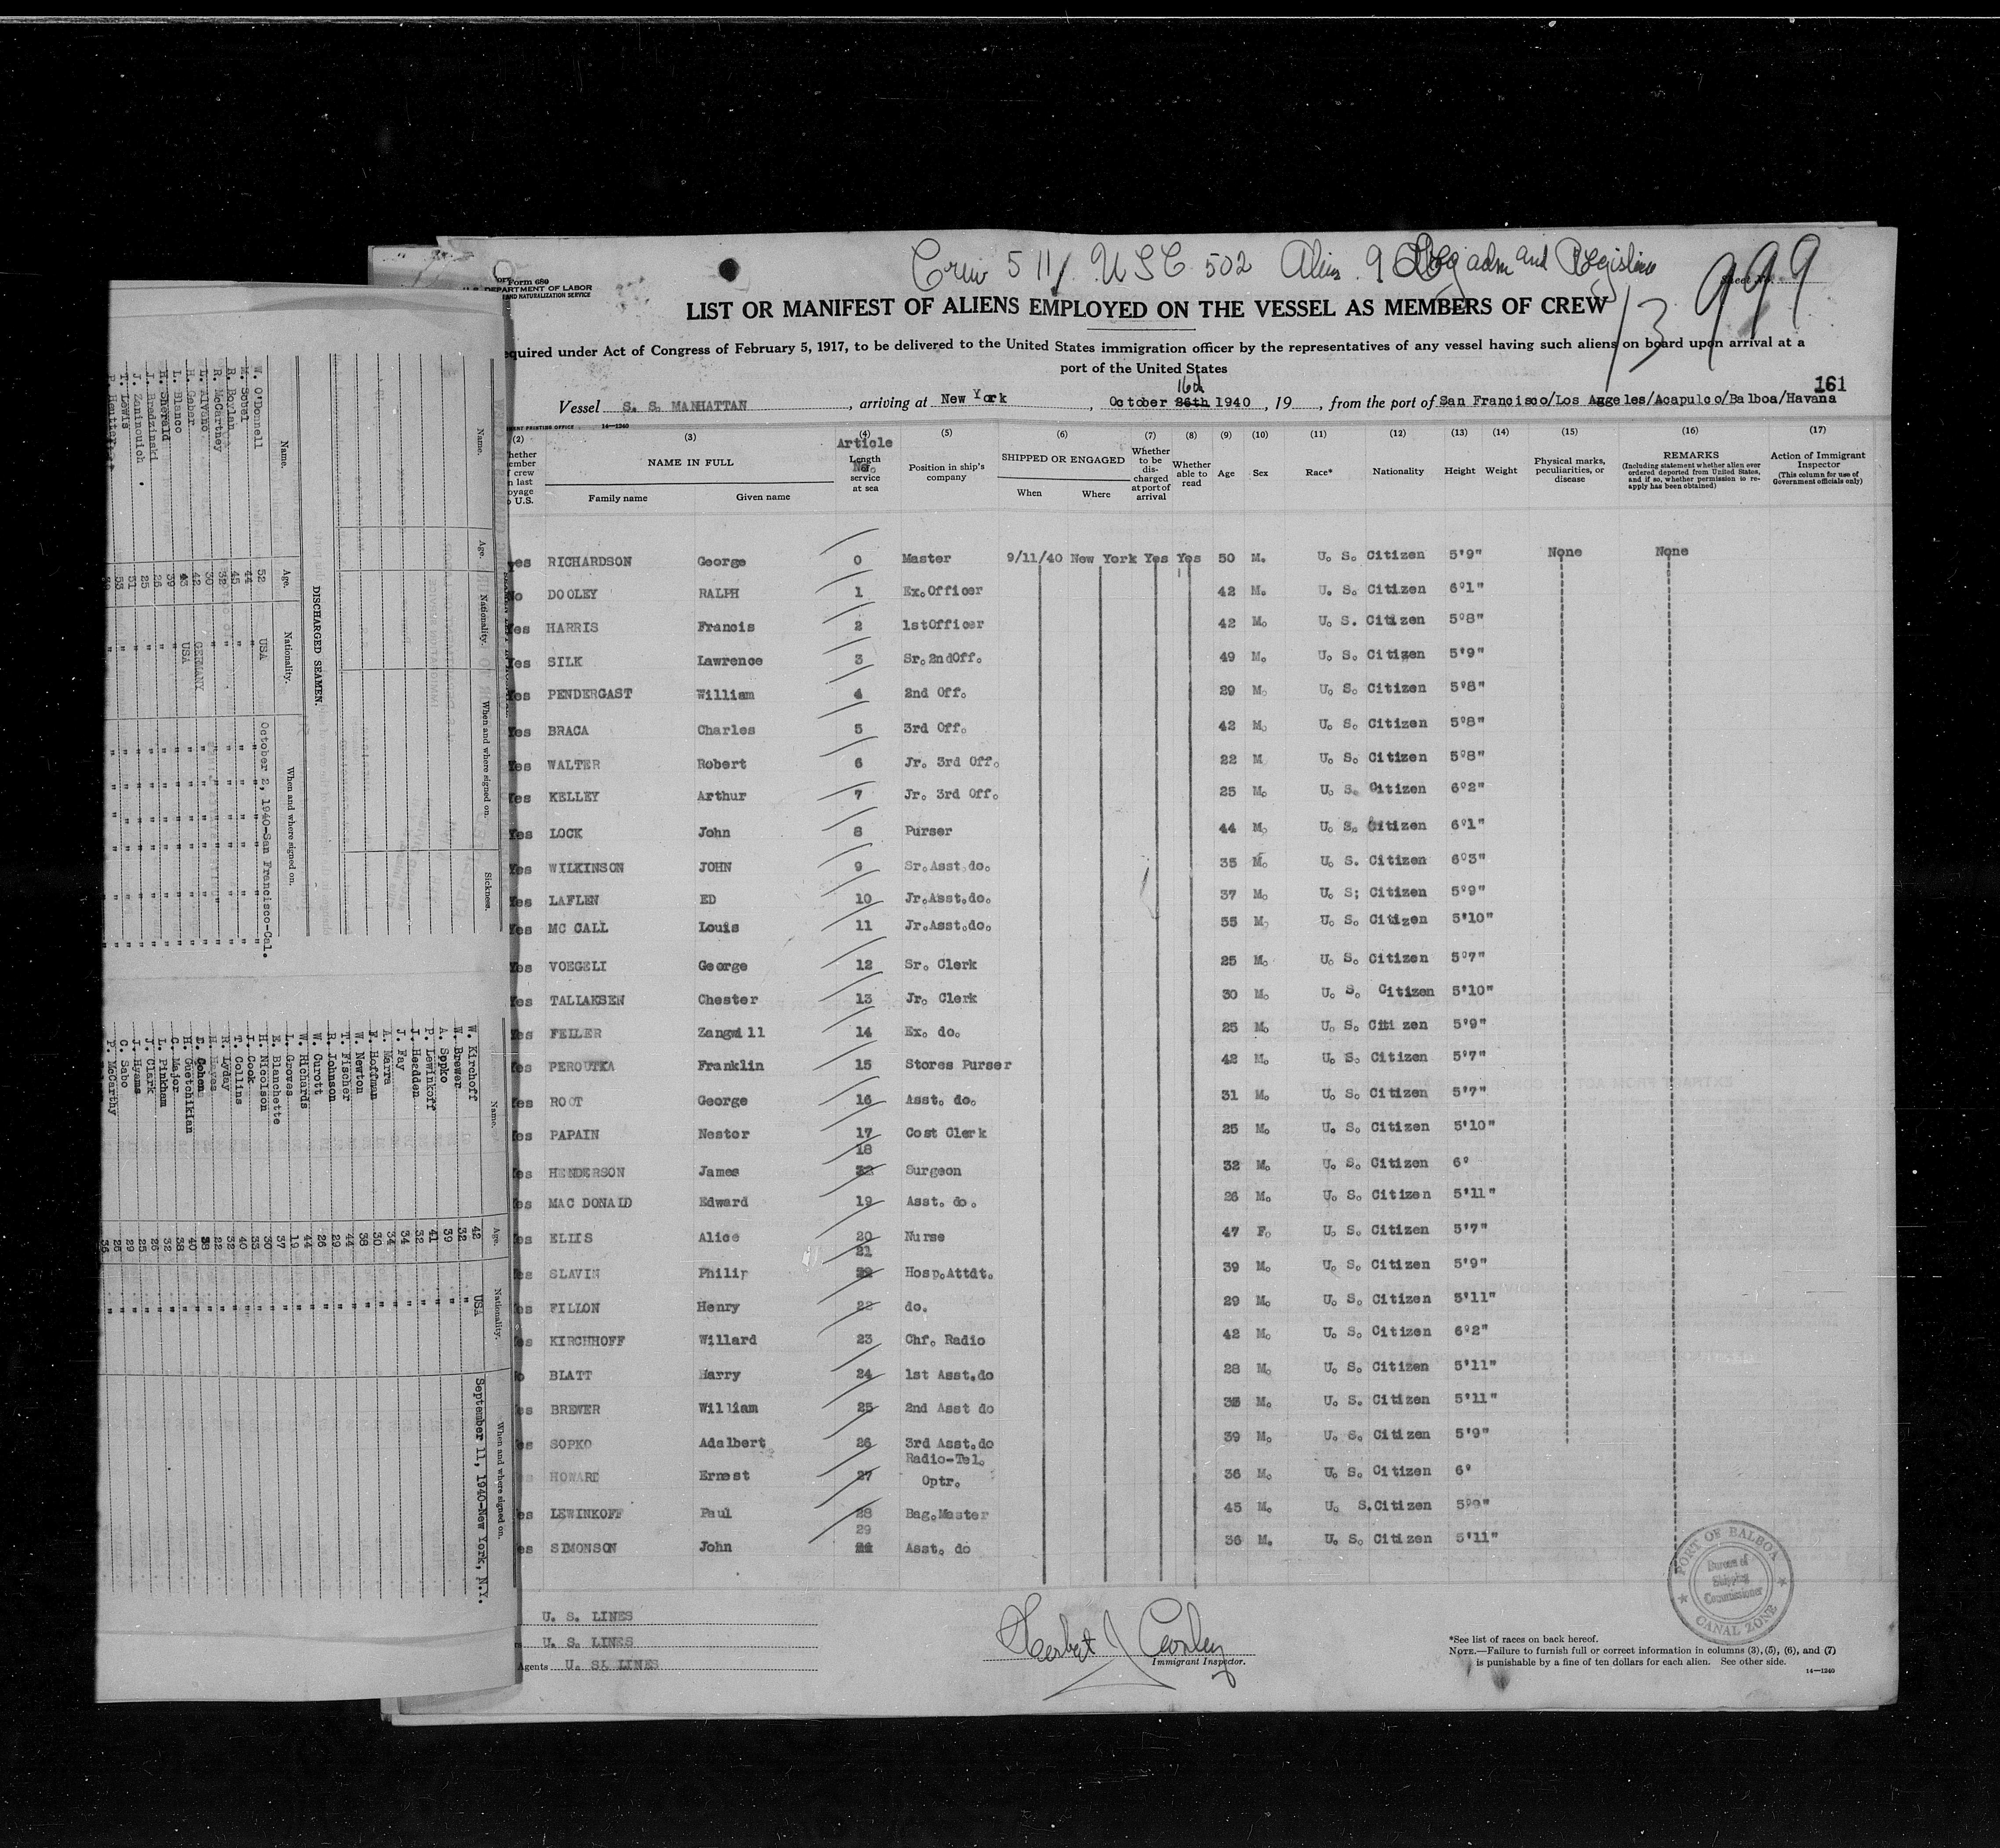 Crew 511 USC 502 Alien 9 adm and Registered
999
13
Form 680
U. S. DEPARTMENT OF LABOR
AND NATURALIZATION SERVICE
Sheet No.
LIST OR MANIFEST OF ALIENS EMPLOYED ON THE VESSEL AS MEMBERS OF CREW
equired under Act of Congress of February 5, 1917, to be delivered to the United States immigration officer by the representatives of any vessel having such aliens on board upon arrival at a
port of the United States
16th
161
Vessel S. S. MANHATTAN, arriving at New York, October 26th 1940, 19, from the port of San Francisco/Los Aggeles/Acapulco/Balboa/Havana
14—1240
(2) (3) (4) (5) (6) (7) (8) (9) (10) (11) (12) (13) (14) (15) (16) (17)
hether ember f crew n last oyage o U.S.
NAME IN FULL
Family name Given name
Article No.
Length service at sea
Position in ship's company
SHIPPED OR ENGAGED
When Where
Whether to be discharged at port of arrival
Whether able to read
Age Sex Race* Nationality Height Weight
Physical marks, peculiarities, or disease
REMARKS
(Including statement whether alien ever ordered deported from United States, and if so, whether permission to reapply has been obtained)
Action of Immigrant Inspector
(This column for use of Government officials only)
Yes RICHARDSON George 0 Master 9/11/40 New York Yes Yes 50 M. U. S. Citizen 5'9" None None
No DOOLEY RALPH 1 Ex.Officer 42 M. U. S. Citizen 6'1"
Yes HARRIS Francis 2 1stOfficer 42 M. U. S. Citizen 5'8"
Yes SILK Lawrence 3 Sr.2ndOff. 49 M. U. S. Citizen 5'9"
Yes PENDERGAST William 4 2nd Off. 29 M. U. S. Citizen 5'8"
Yes BRACA Charles 5 3rd Off. 42 M. U. S. Citizen 5'8"
Yes WALTER Robert 6 Jr. 3rd Off. 22 M U. S. Citizen 5'8"
Yes KELLEY Arthur 7 Jr. 3rd Off. 25 M. U. S. Citizen 6'2"
Yes LOCK John 8 Purser 44 M. U. S. Citizen 6'1"
Yes WILKINSON JOHN 9 Sr.Asst.do. 35 M. U. S. Citizen 6'3"
Yes LAFLEN ED 10 Jr.Asst.do. 37 M. U. S; Citizen 5'9"
Yes MC CALL Louis 11 Jr.Asst.do. 55 M. U. S. Citizen 5'10"
Yes VOEGELI George 12 Sr. Clerk 25 M. U. S. Citizen 5'7"
Yes TALLAKSEN Chester 13 Jr. Clerk 30 M. U. S. Citizen 5'10"
Yes FEILER Zangwill 14 Ex. do. 25 M. U. S. Citi zen 5'9"
Yes PEROUTKA Franklin 15 Stores Purser 42 M. U. S. Citizen 5'7"
Yes ROOT George 16 Asst. do. 31 M. U. S. Citizen 5'7"
Yes PAPAIN Nestor 17 Cost Clerk 25 M. U. S. Citizen 5'10"
es HENDERSON James 18 Surgeon 32 M. U. S. Citizen 6'
es MAC DONALD Edward 19 Asst. do. 26 M. U. S. Citizen 5'11"
es ELLIS Alice 20 Nurse 47 F. U. S. Citizen 5'7"
es SLAVIN Philip 21 Hosp.Attdt. 39 M. U. S. Citizen 5'9"
es FILLON Henry 22 do. 29 M. U. S. Citizen 5'11"
es KIRCHHOFF Willard 23 Chf. Radio 42 M. U. S. Citizen 6'2"
o BLATT Harry 24 1st Asst.do 28 M. U. S. Citizen 5'11"
es BREWER William 25 2nd Asst do M. U. S. Citizen 5'11"
es SOPKO Adalbert 26 3rd Asst.do 39 M. U. S. Citizen 5'9"
es HOWARD Ernest 27 Radio-Tel. Optr. 36 M. U. S. Citizen 6'
es LEWINKOFF Paul 28 Bag.Master 45 M. U. S.Citizen 5'9"
es SIMONSON John 29 Asst. do 36 M. U. S. Citizen 5'11"
U. S. LINES
U. S. LINES
Agents U. S. LINES
Immigrant Inspector.
PORT OF BALBOA
Bureau of Shipping Commissioner
CANAL ZONE
*See list of races on back hereof.
NOTE.—Failure to furnish full or correct information in columns (3), (5), (6), and (7)
is punishable by a fine of ten dollars for each alien. See other side.
14—1240
Name. Age. Nationality. When and where signed on. Sickness.
DISCHARGED SEAMEN.
Name. Age. Nationality. When and where signed on.
W. O'Donnell 52 USA October 2, 1940-San Francisco-Cal.
M. Sobel 44 " "
R. Boylan 45 " "
R. McCarthey " "
L. Rivano 30 "
H. Gaber 42 GERMANY "
L. Blanco 43 USA "
H. Sherald 39 " "
J. Bradzinski 26 " "
J. Zaninouich 25 " "
T. Lewis 51 " "
Name. Age. Nationality. When and where signed on.
W. Kirchoff 42 USA September 11, 1940-New York, N.Y.
W. Brewer 32 "
A. Sopko 39 "
P. Lewinkoff 41 "
J. Headden 32 "
J. Fay 34 "
A. Marra 34 "
F. Hoffman 30 "
W. Newton 38 "
T. Fischer 44 "
R. Johnson 29 "
W. Curott 26 "
W. Richards 44 "
L. Groves 19 "
E. Blanchette 37 "
H. Nicolson 30 "
J. Cook 33 "
T. Collins 40 "
R. Lyday 32 "
H. Hayes 22 "
E. Cohen 38 "
H. Guetchikian 40 "
C. Major 38 "
L. Pinkham 32 "
J. Clark 26 "
J. Hyams 25 "
C. Sabo 29 "
P. McCarthy 26 "